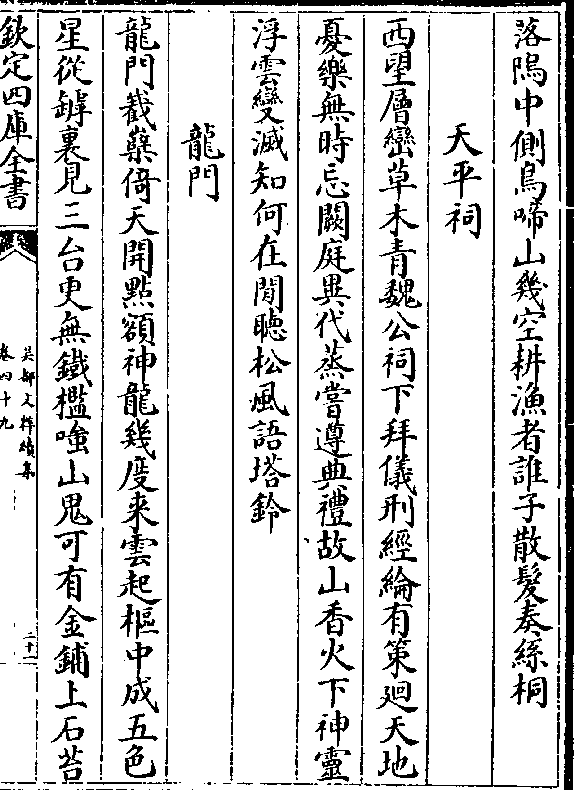 落隖中側鳥啼山幾空耕漁者誰子散髮奏絲桐
天平祠
西望層巒草木青魏公祠下拜儀刑經綸有策廻天地
憂樂無時忘闕庭異代蒸嘗遵典禮故山香火下神靈
浮雲變滅知何在閒聽松風語塔鈴
龍門
龍門截嶪倚天開點額神龍幾度来雲起樞中成五色
星從罅裏見三台更無鐵檻嗤山鬼可有金鋪上石苔
欽定四庫全書
吳都文粹續集
卷四十九
二十二